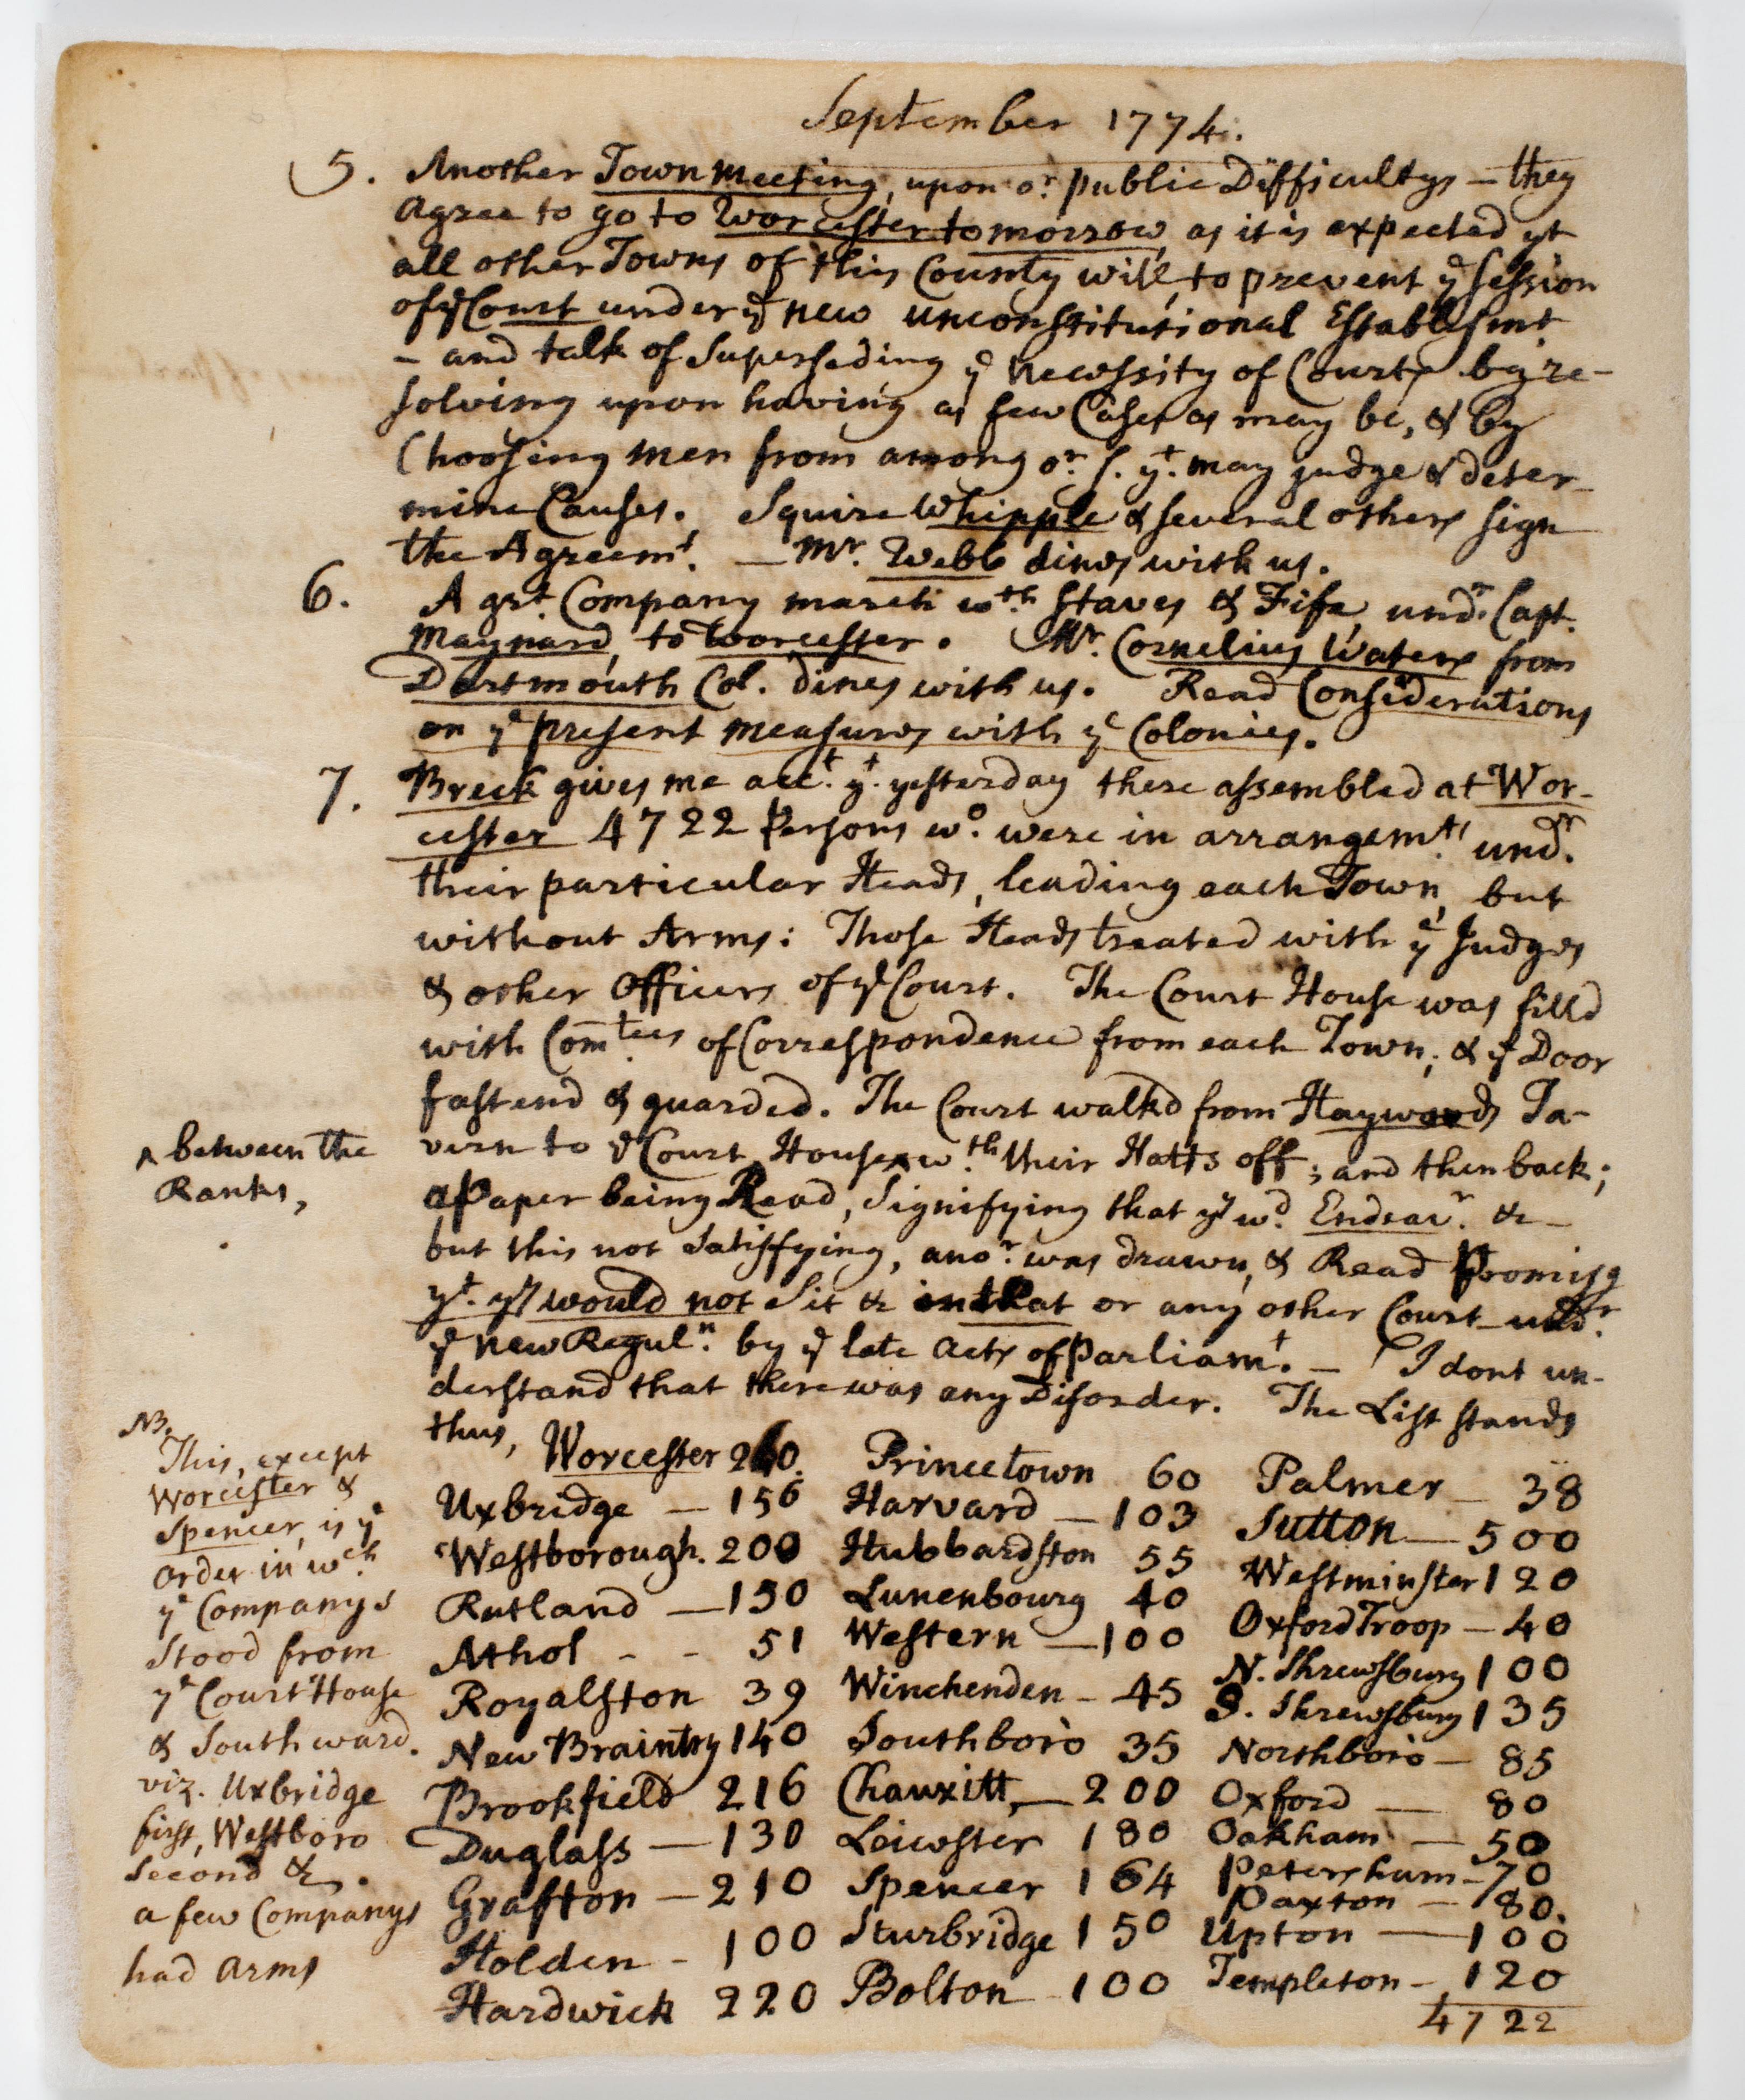 September 1774.
5. Another Town meeting, upon or. public Difficultys — they
agree to go to Worcester tomorrow, as it is expected yt
all other Towns of this County will, to prevent ye Session
of ye Court under ye new unconstitutional Establishmt.
– and talk of Superseding ye necessity of Courts by re-
solving upon having as few Cases as may be, & by
Choosing men from among or. s. yt. may judge & deter-
mine Causes. Squire Whipple & several others sign
the Agreemt. — Mr. Webb dines with us.
6. A grt Company march wth. Staves & Fife, undr. Capt.
Maynard, to Worcester. Mr. Cornelius Waters from
Dartmouth Col. dines with us. Read Considerations
on ye present measures with ye Colonies.
7. Breck gives me acct. yt. yesterday there assembled at Wor-
cester 4722 Persons wo. were in arrangemts. undr.
their particular Heads, leading each Town, but
without Arms: Those Heads treated with ye Judges
& other Officers of ye Court. The Court House was filld
with Comtees of Correspondence from each Town; & ye Door
fastend & guarded. The Court walkd from Haywards Ta-
vern to ye Court House ^ wth. their Hatts off; and then back;
^ between the
Ranks,
a Paper being Read, Signifying that yy wd. Endeavr. &c –
but this not Satisfying, anor. was drawn, & Read Promisg
yt. yy would not Sit &c in that or any other Court undr.
ye new Reguln. by ye late Acts of Parliamt. – I dont un-
derstand that there was any Disorder. The List stands
thus, Worcester 260. Princetown 60 Palmer – 38
Uxbridge — 156 Harvard — 103 Sutton — 500
Westborough. 200 Hubbardston 55 Westminster 120
Rutland — 150 Lunenbourg 40 Oxford Troop – 40
Athol - - 51 Western — 100 N. Shrewsbury 100
Royalston 39 Winchenden – 45 S. Shrewsbury 135
New Braintry 140 Southboro 35 Northboro – 85
Brookfield 216 Chauxitt, — 200 Oxford — 80
Duglass — 130 Leicester 180 Oakham — 50
Grafton — 210 Spencer 164 Petersham – 70
Paxton — 80.
Holden - 100 Sturbridge 150 Upton — 100
Hardwick 220 Bolton 100 Templeton – 120
4722
NB.
This, except
Worcester &
Spencer, is ye
order in wch.
ye Companys
Stood from
ye Court House
& Southward.
viz. Uxbridge
first, Westboro
Second &c.
a few Companys
had arms